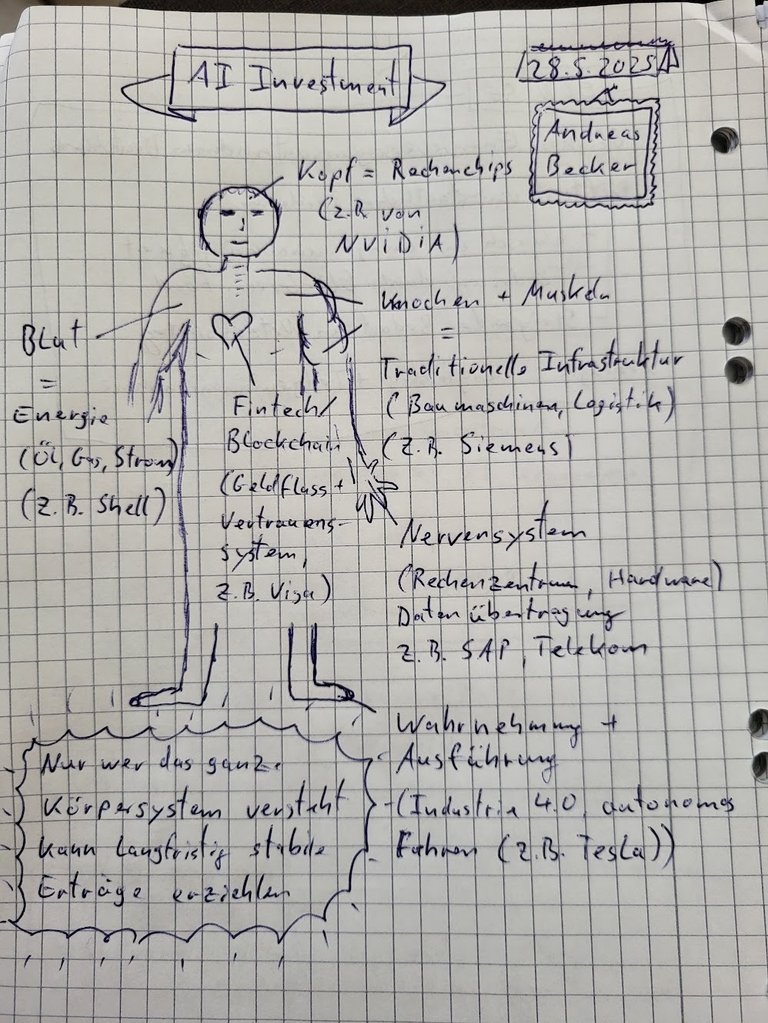 AI Investment
28.5.2025
Andreas
Becker
Kopf = Rechenchips
(z.B. von
NViDiA)
Knochen + Muskeln
=
Traditionelle Infrastruktur
(Baumaschinen, Logistik)
(z.B. Siemens)
BLut
=
Energie
(Öl, Gas, Strom)
(z.B. Shell)
Fintech/
Blockchain
(Geldfluss +
Vertrauens-
system,
z.B. Visa)
Nervensystem
(Rechenzentrum, Hardware)
Datenübertragung
z.B. SAP, Telekom
Wahrnehmung +
Ausführung
(Industrie 4.0, autonomes
Fahren (z.B. Tesla))
Nur wer das ganze
Körpersystem versteht
kann langfristig stabile
Erträge erziehlen